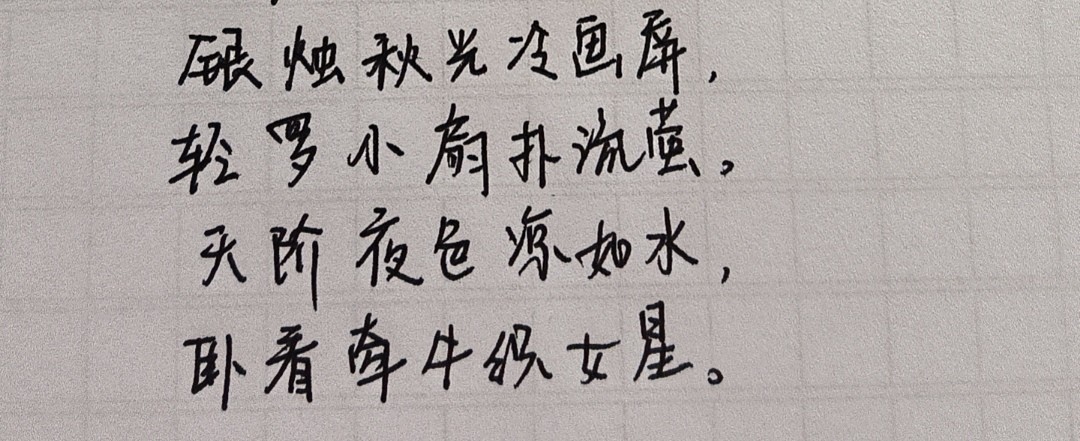 银烛秋光冷画屏,
轻罗小扇扑流萤。
天阶夜色凉如水,
卧看牵牛织女星。